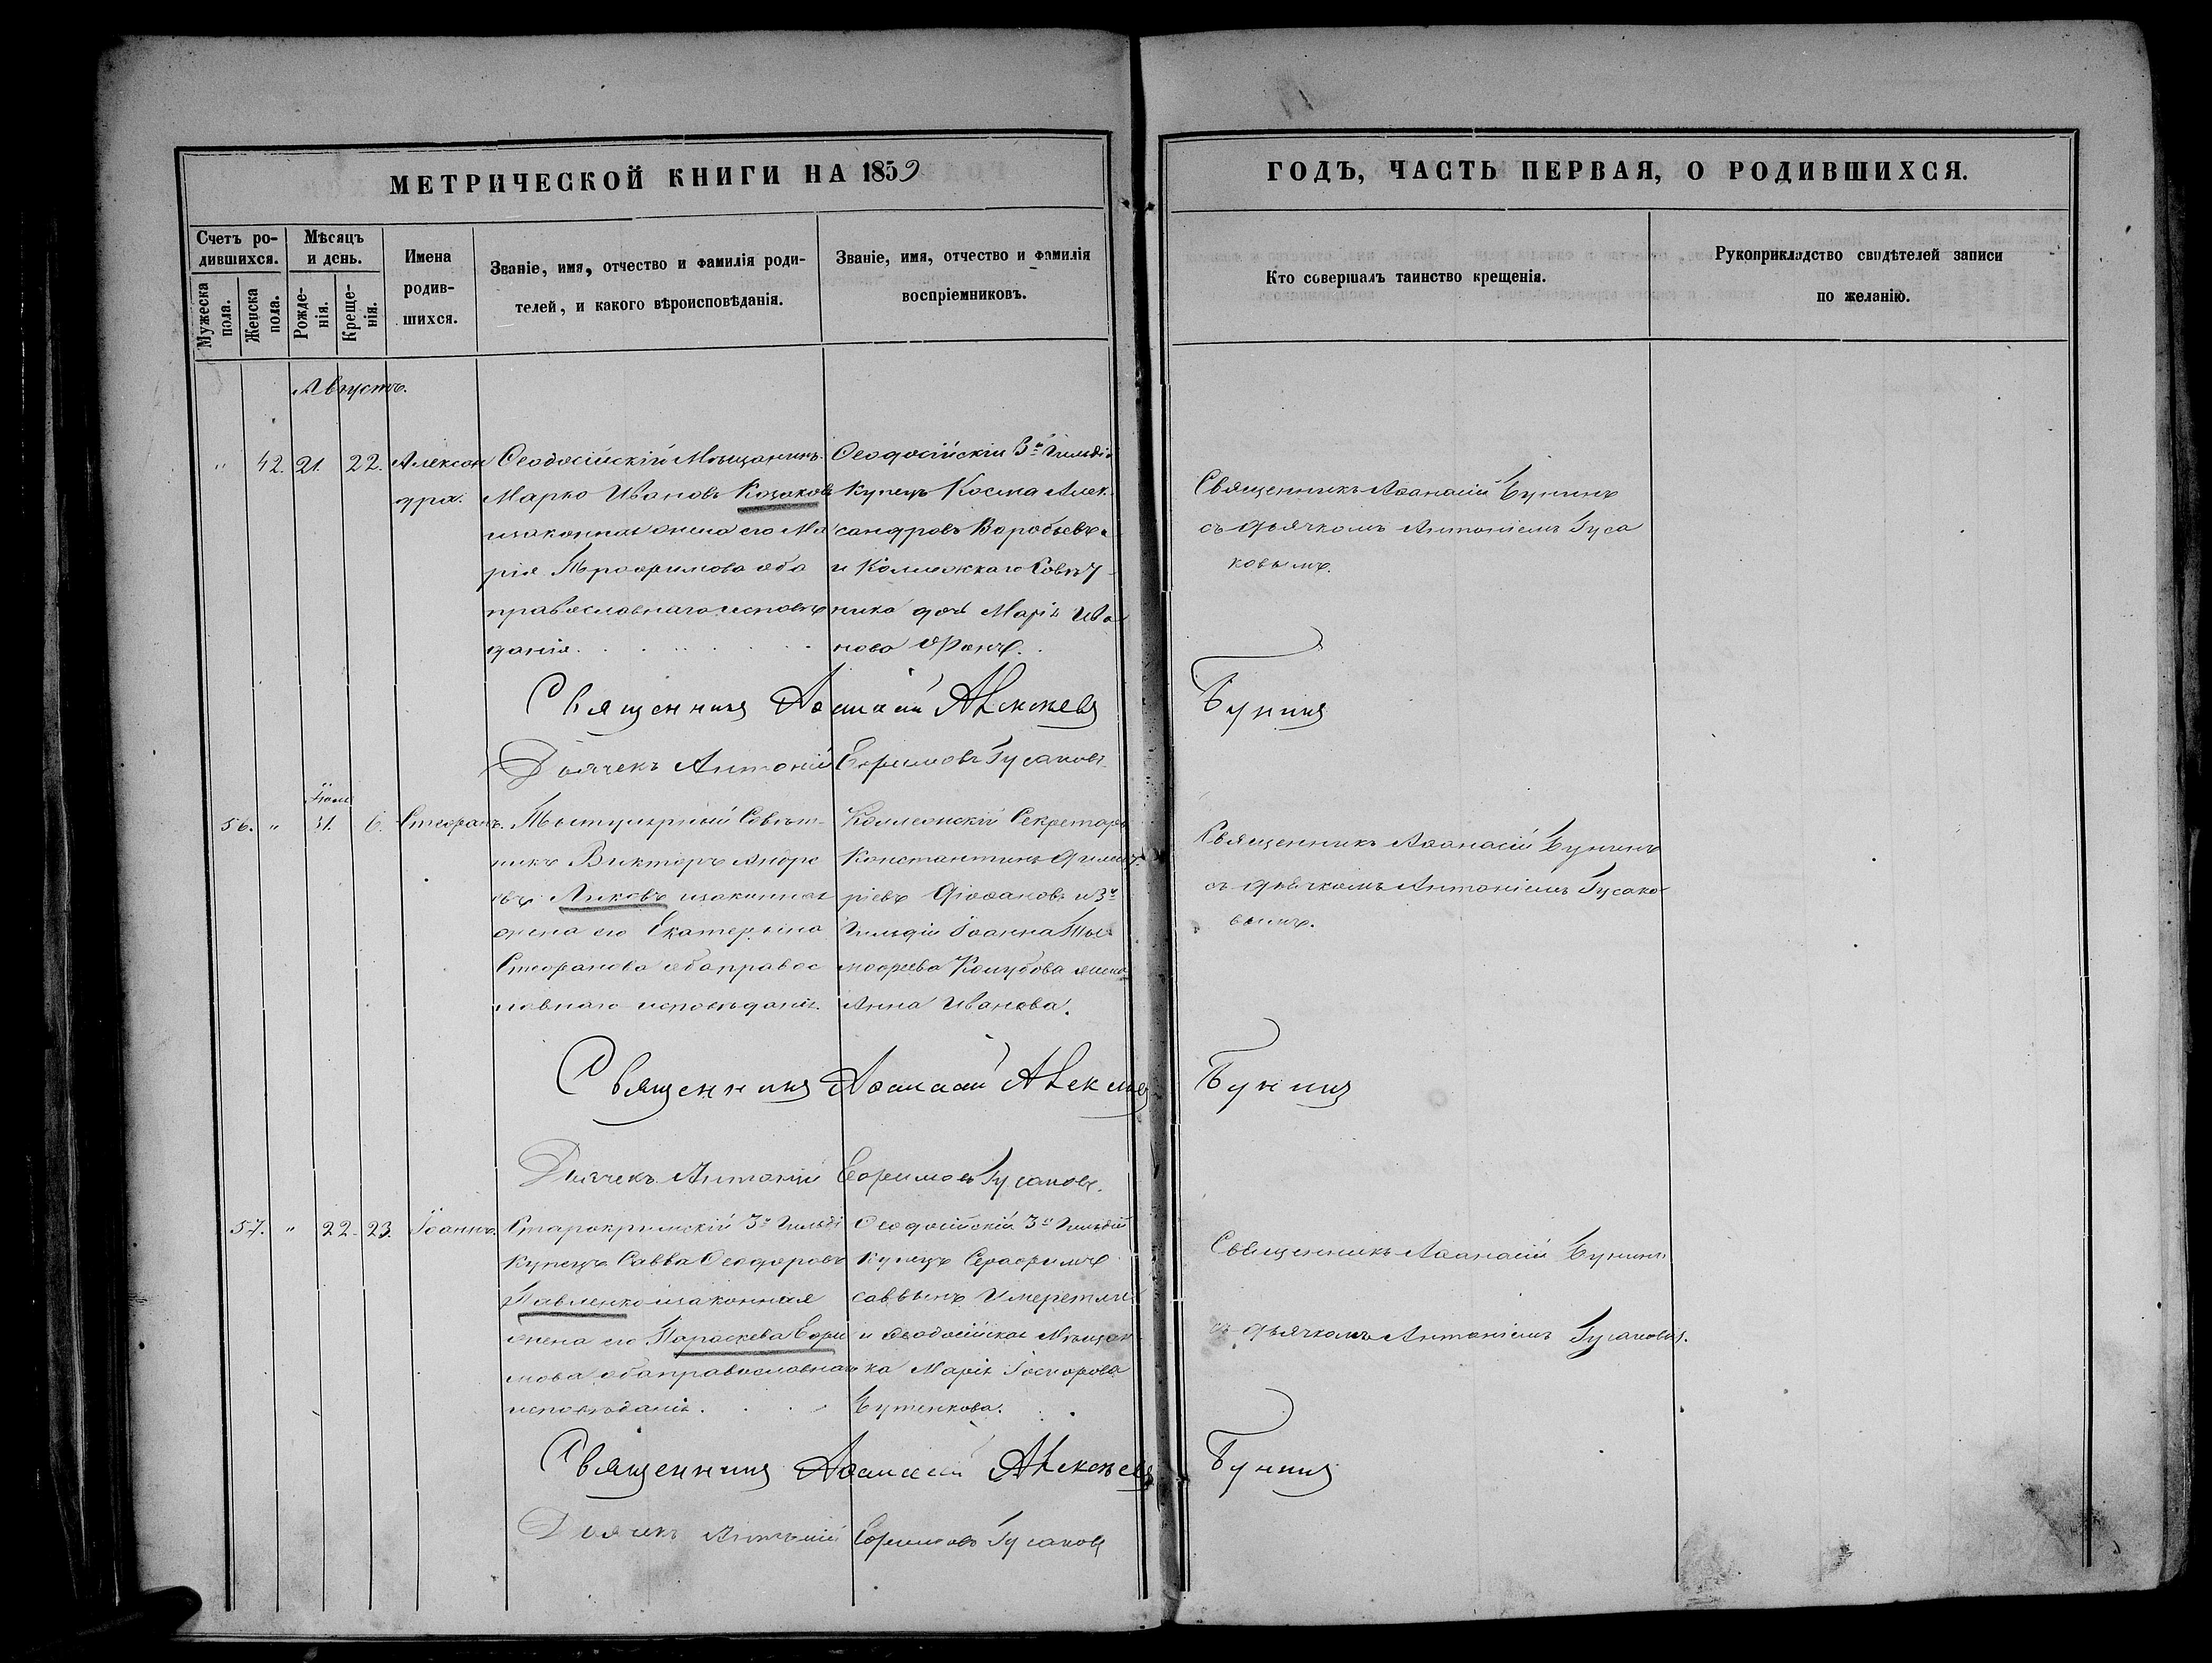 МЕТРИЧЕСКОЙ КНИГИ НА 1859
ГОДЪ, ЧАСТЬ ПЕРВАЯ, О РОДИВШИХСЯ.
Счетъ ро-
дившихся.
Мужеска
пола.
Женска
пола.
Мѣсяцъ
и день.
Рожде-
нія.
Креще-
нія.
Имена
родив-
шихся.
Званіе, имя, отчество и фамилія роди-
телей, и какого вѣроисповѣданія.
Званіе, имя, отчество и фамилія
воспріемниковъ.
Кто совершалъ таинство крещенія.
Рукоприкладство свидѣтелей записи
по желанію.
Августъ.
" 42. 21. 22. Алексан
дра.
Ѳеодосійскій Мѣщанинъ
Марко Ивановъ Козаковъ
изаконная жена его Ма
рія Трофимова оба
православнаго исповѣ
данія.
Ѳеодосійскій 3й Гильдіи
Купецъ Косма Алек
сандровъ Воробьевъ
и Коллежскаго Совѣт
ника дочь Марія Ива
нова
Священникъ Аѳанасій Бунинъ
съ дьячкомъ Антоніемъ Гуса
ковымъ.
Священникъ Аѳанасій Алексѣевъ Бунинъ
Дьячекъ Антоній Ефимовъ Гусаковъ
56. " 31. 6. Стефанъ.
Титулярный Совѣт
никъ Викторъ Андре
евъ Ликовъ изаконная
жена его Екатерина
Стефанова обаправос
лавнаго исповѣданія.
Коллежскій Секретарь
Константинъ Димит
ріевъ и 3й
Гильдіи Іоанна Ти
моѳеева жена
Анна Иванова.
Священникъ Аѳанасій Бунинъ
съ дьячкомъ Антоніемъ Гусако
вымъ.
Священникъ Аѳанасій Алексѣевъ Бунинъ
Дьячекъ Антоній Ефимовъ Гусаковъ.
57. " 22. 23. Іоаннъ.
Старокрымскій 3й Гильді
Купецъ Савва Ѳеодоровъ
Павленко изаконная
жена его Параскева Ефи
мова обаправославнаго
исповѣданія.
Ѳеодосійскій 3й Гильдіи
Купецъ Серафимъ
саввинъ
и Ѳеодосійская Мѣщан
ка Марія
Бутенкова.
Священникъ Аѳанасій Бунинъ
съ дьячкомъ Антоніемъ Гусаковы.
Священникъ Аѳанасій Алексѣевъ Бунинъ
Дьячекъ Антоній Ефимовъ Гусаковъ